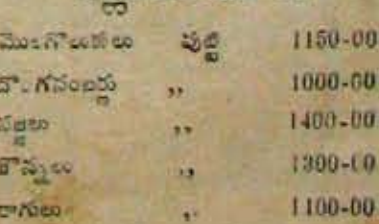 మొలగొలుకులు పుట్టి 1150-00
దొ. గనంబర్లు ,, 1000-00
సజ్జలు ,, 1400-00
జొన్నలు ,, 1300-00
రాగులు ,, 1100-00